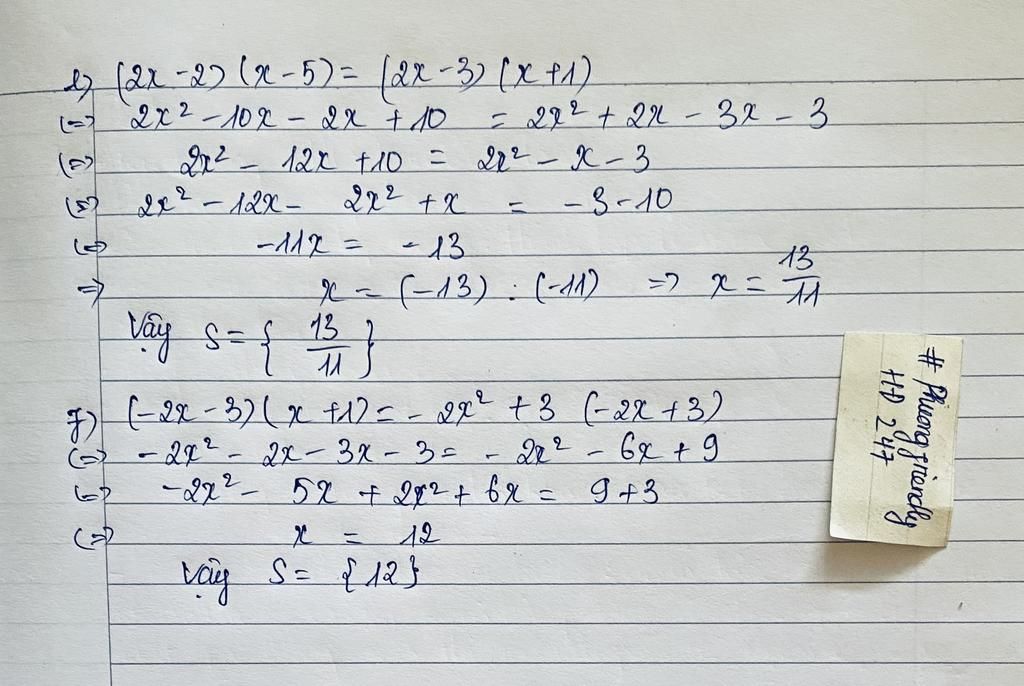 e) (2x - 2) (x - 5) = (2x - 3) (x + 1)
(=) 2x² - 10x - 2x + 10 = 2x² + 2x - 3x - 3
(=) 2x² - 12x + 10 = 2x² - x - 3
(=) 2x² - 12x - 2x² + x = - 3 - 10
(=) -11x = - 13
=> x = (-13) : (-11) => x = 13/11
Vậy S = { 13/11 }
f) (-2x - 3) (x + 1) = - 2x² + 3 (-2x + 3)
(=) - 2x² - 2x - 3x - 3 = - 2x² - 6x + 9
(=) -2x² - 5x + 2x² + 6x = 9 + 3
(=) x = 12
Vậy S = {12}
# Phuongfriendly
HD 247